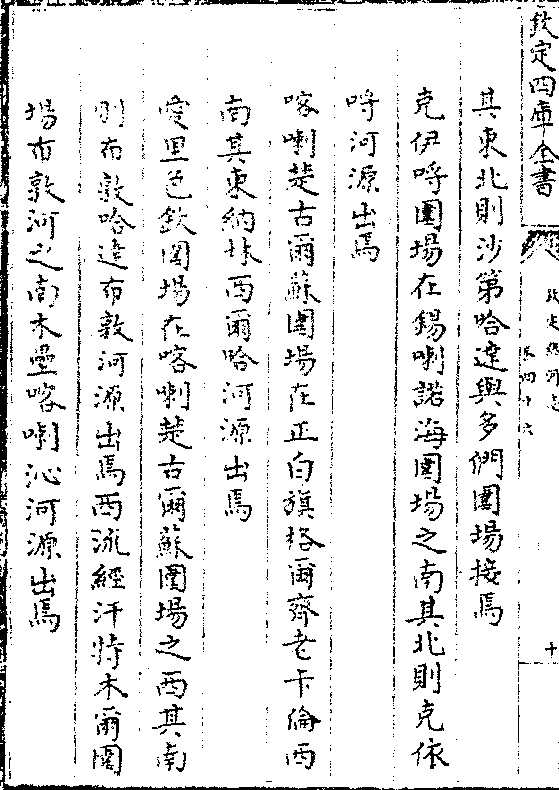 欽定四庫全書
欽定熱河志
卷四十六
十
其東北則沙第哈達與多們圍場接焉
克伊呼圍場在錫喇諾海圍場之南其北則克依
呼河源出焉
喀喇楚古爾蘇圍場在正白旗格爾齊老卡倫西
南其東納林西爾哈河源出焉
愛里色欽圍場在喀喇楚古爾蘇圍場之西其南
則布敦哈達布敦河源出焉西流經汗特木爾圍
場布敦河之南木壘喀喇沁河源出焉